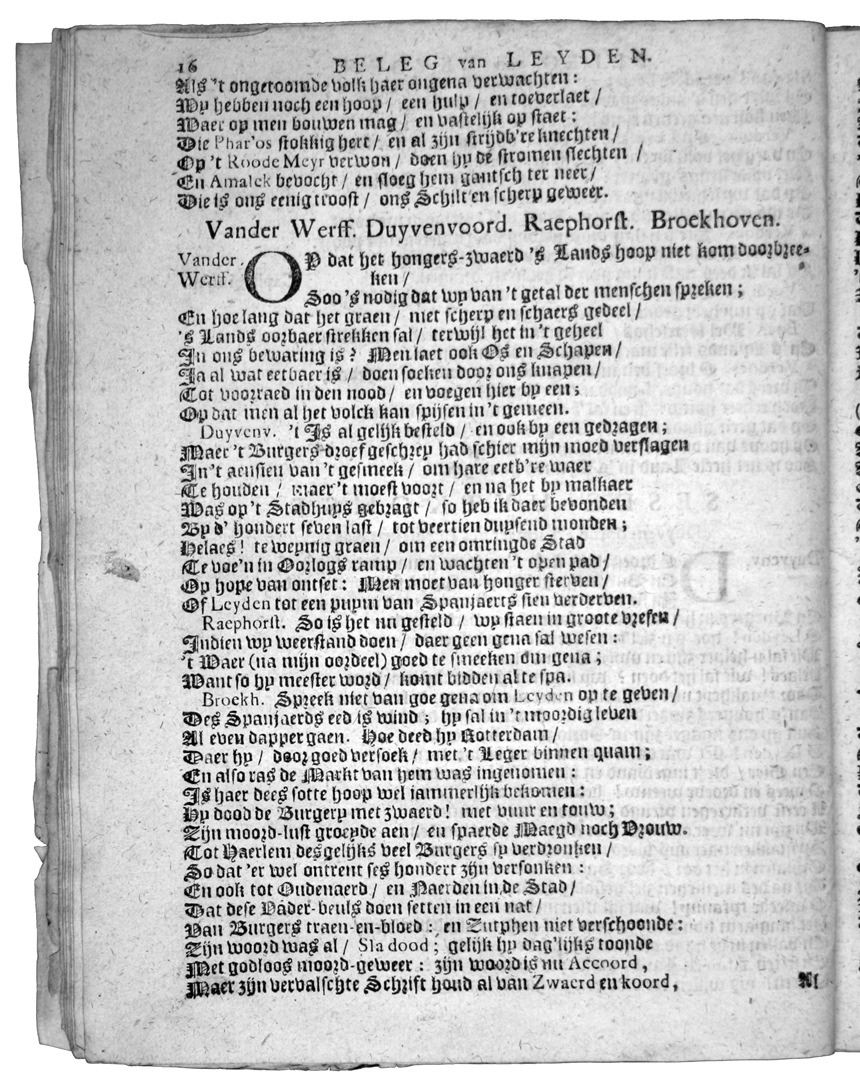 16 BELEG van LEYDEN.
Als 't ongetoomde volk haer ongena verwachten:
Wy hebben noch een hoop / een hulp / en toeverlaet /
Waer op men bouwen mag / en vastelijk op staet:
Die Phar'os stokkig hert / en al zijn strijdb're knechten /
Op 't Roode Meyr verwon / doen hy de stromen slechten /
En Amalek bevocht / en sloeg hem gantsch ter neer /
Die is ons eenig troost / ons Schilt en scherp geweer.
Vander Werff. Duyvenvoord. Raephorst. Broekhoven.
Vander Werff. OP dat het hongers-zwaerd 's Lands hoop niet kom doorbree-
ken /
Soo 's nodig dat wy van 't getal der menschen spreken;
En hoe lang dat het graen / met scherp en schaers gedeel /
's Lands oorbaer strekken sal / terwijl het in 't geheel
In ons bewaring is? Men laet ook Os en Schapen /
Ja al wat eetbaer is / doen soeken door ons knapen /
Tot voorraed in den nood / en voegen hier by een;
Op dat men al het volck kan spijsen in 't gemeen.
Duyvenv. 't Is al gelijk besteld / en ook by een gedragen;
Maer 't Burgers droef geschrey had schier mijn moed verslagen
In 't aensien van 't gesmeek / om hare eetb're waer
Te houden / maer 't moest voort / en na het by malkaer
Was op 't Stadhuys gebragt / so heb ik daer bevonden
By d' hondert seven last / tot veertien duysend monden;
Helaes! te weynig graen / om een omringde Stad
Te voe'n in Oorlogs ramp / en wachten 't open pad /
Op hope van ontset: Men moet van honger sterven /
Of Leyden tot een puym van Spanjaerts sien verderven.
Raephorst. So is het nu gesteld / wy staen in groote vresen /
Indien wy weerstand doen / daer geen gena sal wesen:
't Waer (na mijn oordeel) goed te smeeken om gena;
Want so hy meester word / komt bidden al te spa.
Broekh. Spreek niet van goe gena om Leyden op te geven /
Des Spanjaerds eed is wind; hy sal in 't moordig leven
Al even dapper gaen. Hoe deed hy Rotterdam /
Daer hy / door goed versoek / met 't Leger binnen quam;
En also ras de Markt van hem was ingenomen:
Is haer dees sotte hoop wel jammerlijk bekomen:
Hy dood de Burgery met zwaerd! met vuur en touw;
Zijn moord-lust groeyde aen / en spaerde Maegd noch Vrouw.
Tot Haerlem desgelijks veel Burgers sy verdronken /
So dat 'er wel ontrent ses hondert zijn versonken:
En ook tot Oudenaerd / en Naerden in de Stad /
Dat dese Vader-beuls doen setten in een nat /
Van Burgers traen-en-bloed: en Zutphen niet verschoonde:
Zijn woord was al / Sla dood; gelijk hy dag'lijks toonde
Met godloos moord-geweer: zijn woord is nu Accoord,
Maer zijn vervalschte Schrift houd al van Zwaerd en koord,